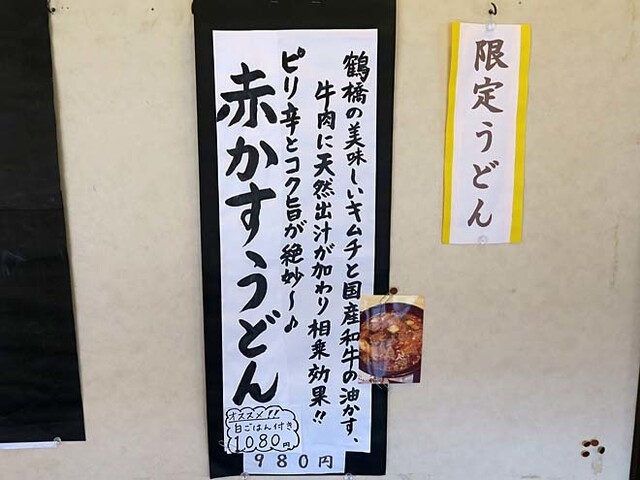 限定うどん
鶴橋の美味しいキムチと国産和牛の油かす、
牛肉に天然出汁が加わり相乗効果!!
ピリ辛とコク旨が絶妙〜♪
赤かすうどん
オススメ!!
白ごはん付き
1080円
980円